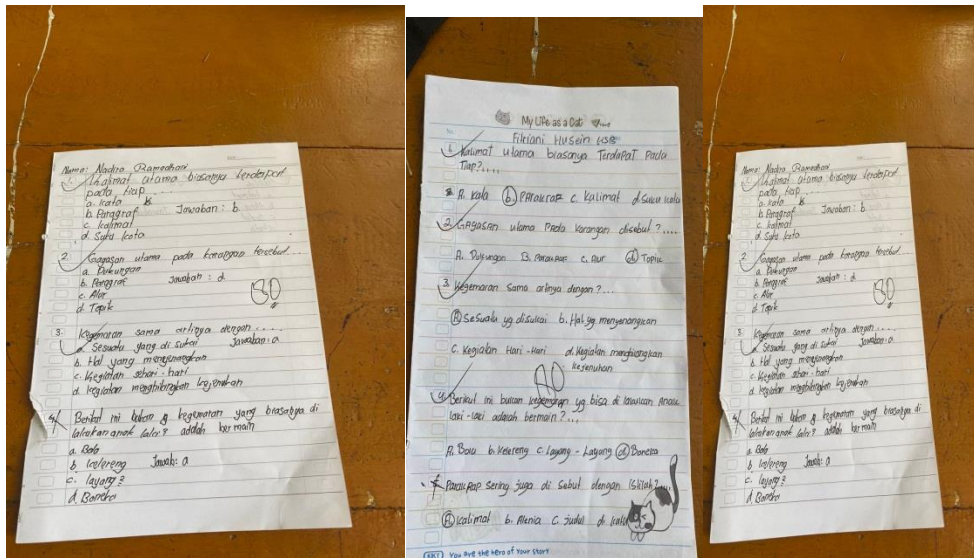 Nama: Nadira Ramadhani
1. Kalimat utama biasanya terdapat
pada tiap ....
a. kata
b. Paragraf Jawaban : b.
c. kalimat
d. Suku kata
2. Gagasan utama pada karangan tersebut ....
a. Dukungan
b. Paragraf Jawaban : d
c. Alur
d. Topik
80
3. Kegemaran sama artinya dengan ....
a. Sesuatu yang di sukai Jawaban: a
b. Hal yang menyenangkan
c. Kegiatan sehari-hari
d. kegiatan menghilangkan kejenuhan
4. Berikut ini bukan kegemaran yang biasanya di
lakukan anak laki² adalah bermain
a. Bola
b. kelereng Jawab: a
c. layang²
d. Boneka
My Life as a Cat
No.
Fitriani Husein
1. Kalimat utama biasanya Terdapat Pada
Tiap?....
A. kata b. PAraKRAF c. Kalimat d. Suku kata
2. GAgasan utama Pada karangan disebut ?....
A. Dukungan B. ParaKRAF c. Alur d. Topik
3. Kegemaran Sama artinya dengan ?...
A Sesuatu yg disukai b. Hal yg menyenangkan
C. Kegiatan Hari-Hari d. Kegiatan menghilangkan
kejenuhan
80
4. Berikut ini bukan kegemaran yg bisa di lakukan Anak
laki-laki adalah bermain ?...
A. Bola b. Kelereng c. Layang-Layang d Boneka
5. ParakRap sering juga di Sebut dengan Istilah?....
A kalimat b. Alenia C. Judul d. kata
You are the hero of Your story
Nama: Nadira Ramadhani
1. Kalimat utama biasanya terdapat
pada tiap ....
a. kata
b. Paragraf Jawaban : b.
c. kalimat
d. Suku kata
2. Gagasan utama pada karangan tersebut ....
a. Dukungan
b. Paragraf Jawaban : d
c. Alur
d. Topik
80
3. Kegemaran sama artinya dengan ....
a. Sesuatu yang di sukai Jawaban: a
b. Hal yang menyenangkan
c. Kegiatan sehari-hari
d. kegiatan menghilangkan kejenuhan
4. Berikut ini bukan kegemaran yang biasanya di
lakukan anak laki² adalah bermain
a. Bola
b. kelereng Jawab: a
c. layang²
d. Boneka